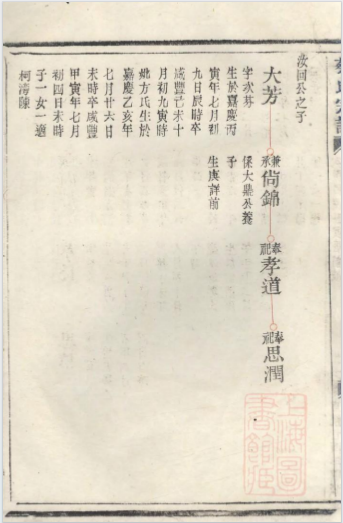 汝囘公之子
大芳
兼承尙錦
奉祀孝道
奉祀思潤
字次芬
生於嘉慶丙
寅年七月初
九日辰時卒
咸豐己未十
月初九寅時
妣方氏生於
嘉慶乙亥年
七月廿六日
未時卒咸豐
甲寅年七月
初四日未時
子一女一適
柯清陳
係大鼎公養
子
生庚詳前
上海圖書館藏